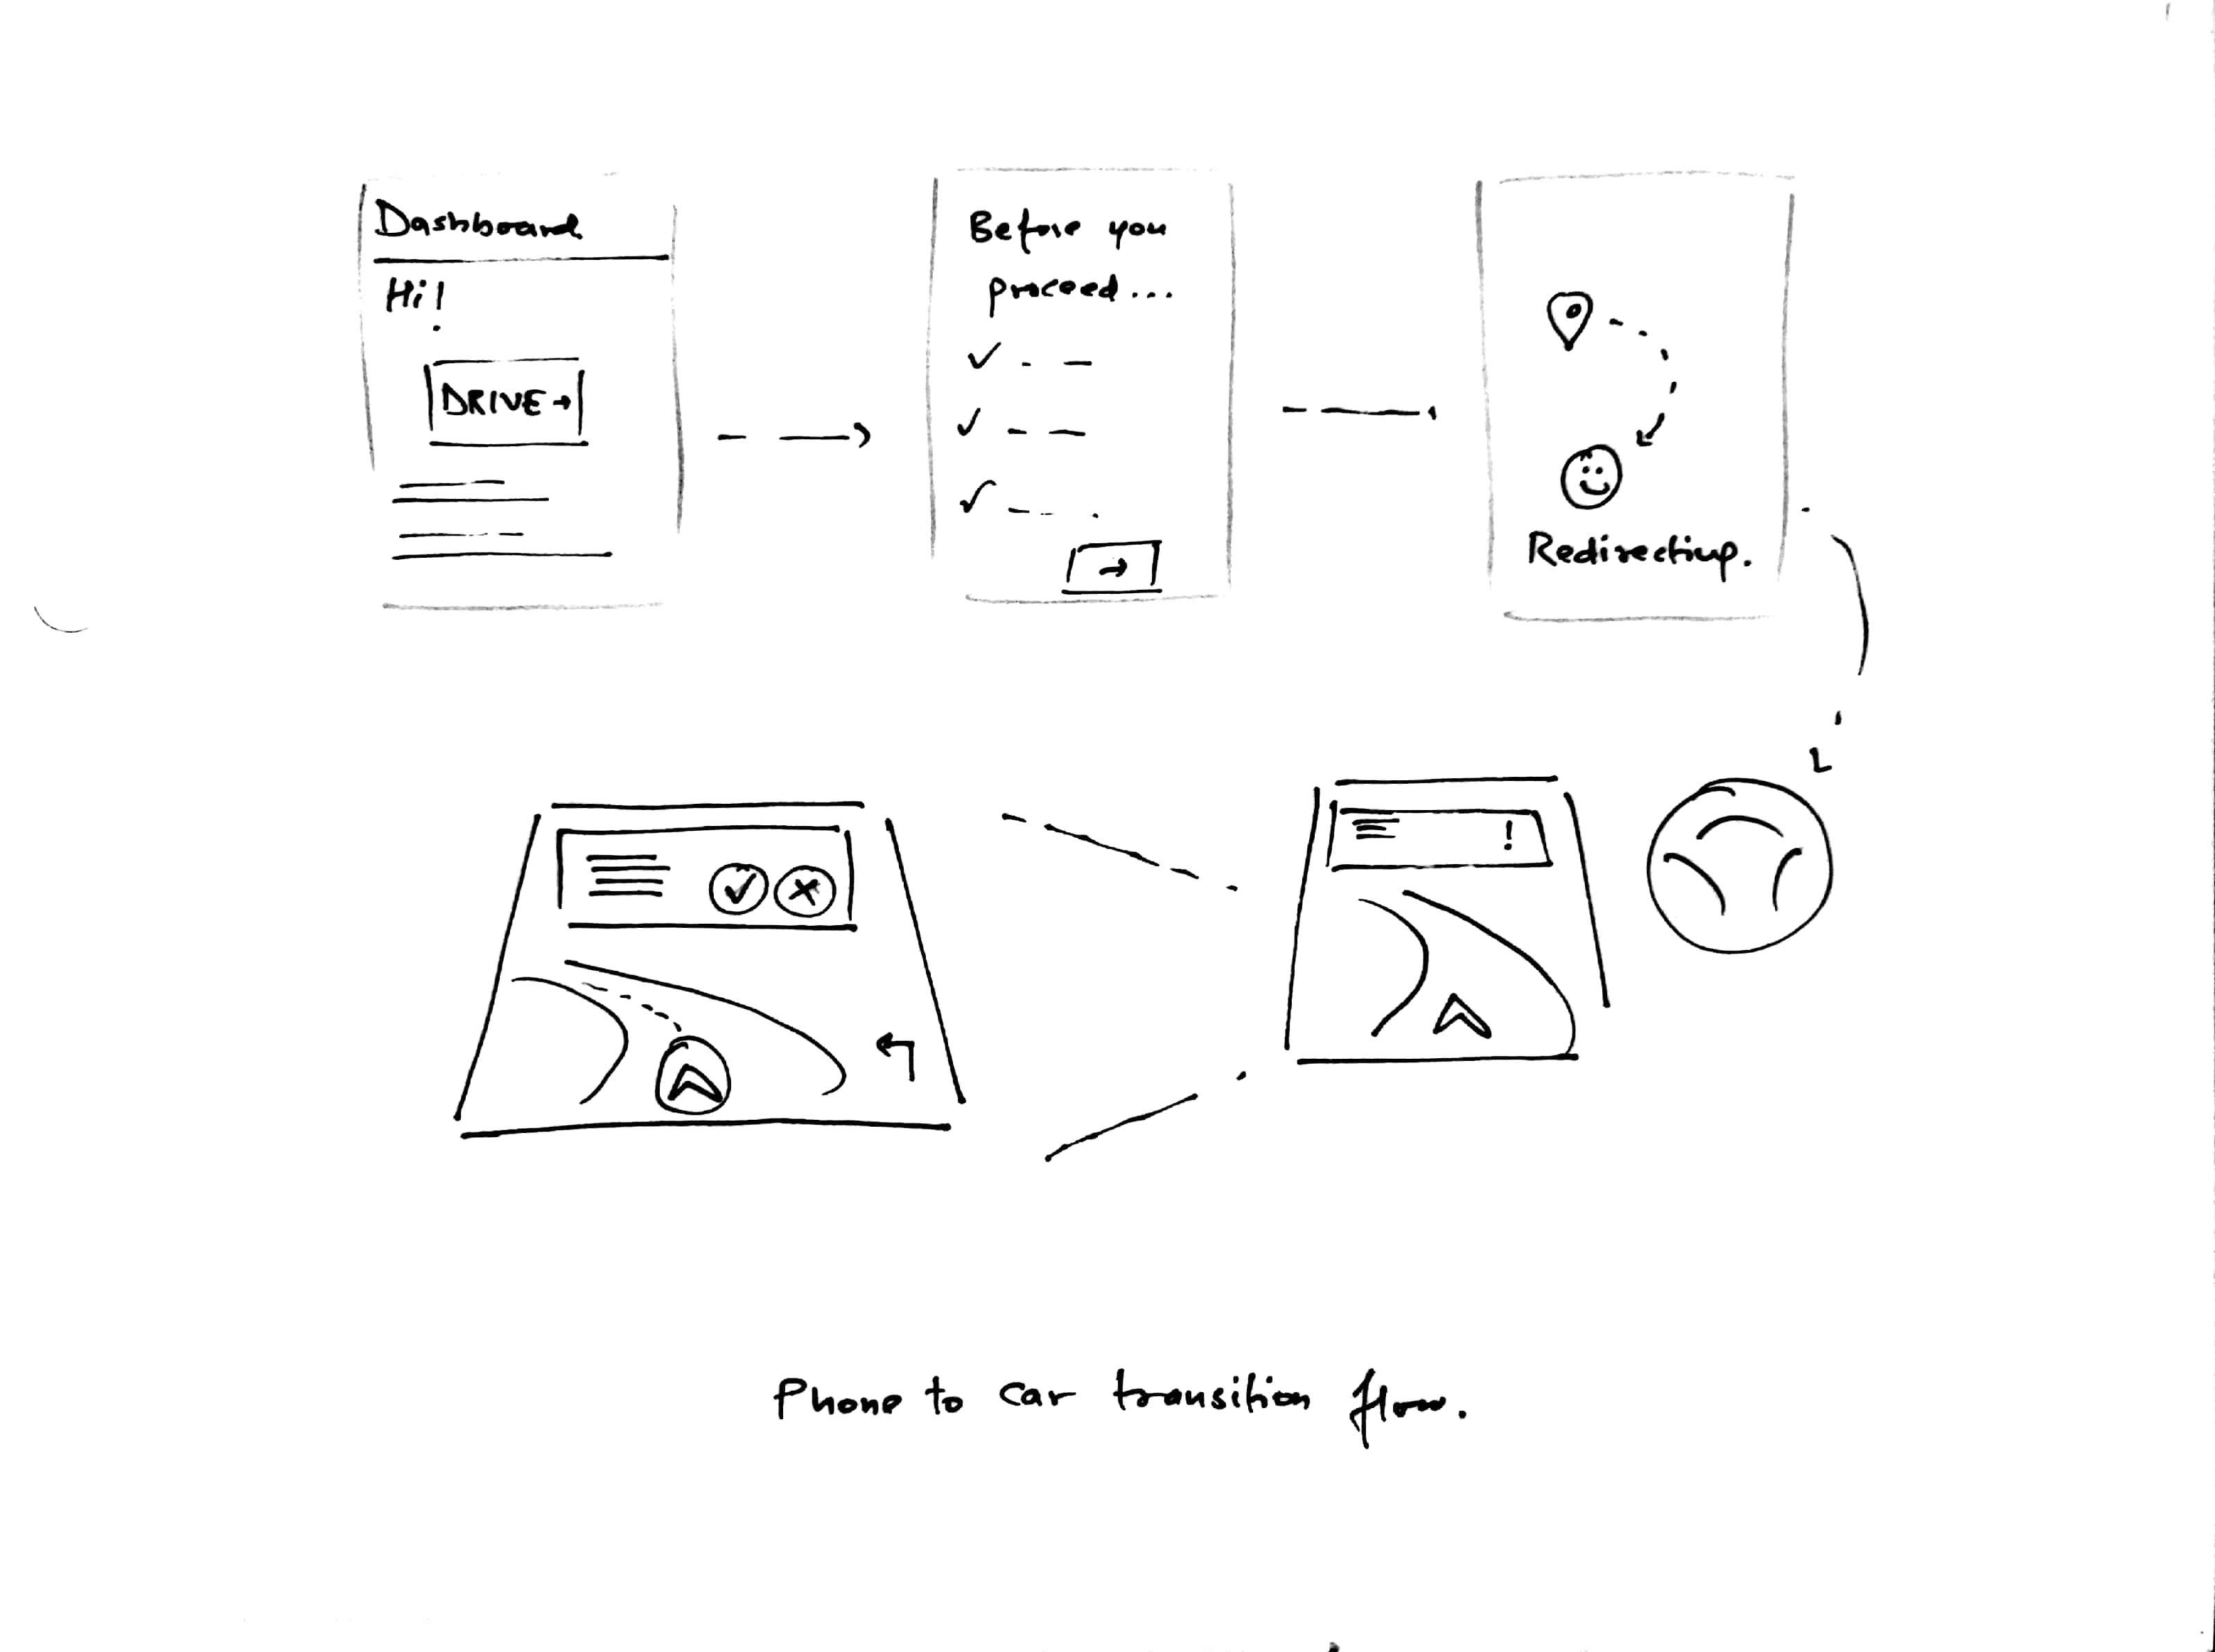 Dashboard
Hi!
DRIVE →
Before you
proceed...
Redirecting.
!
Phone to car transition flow.